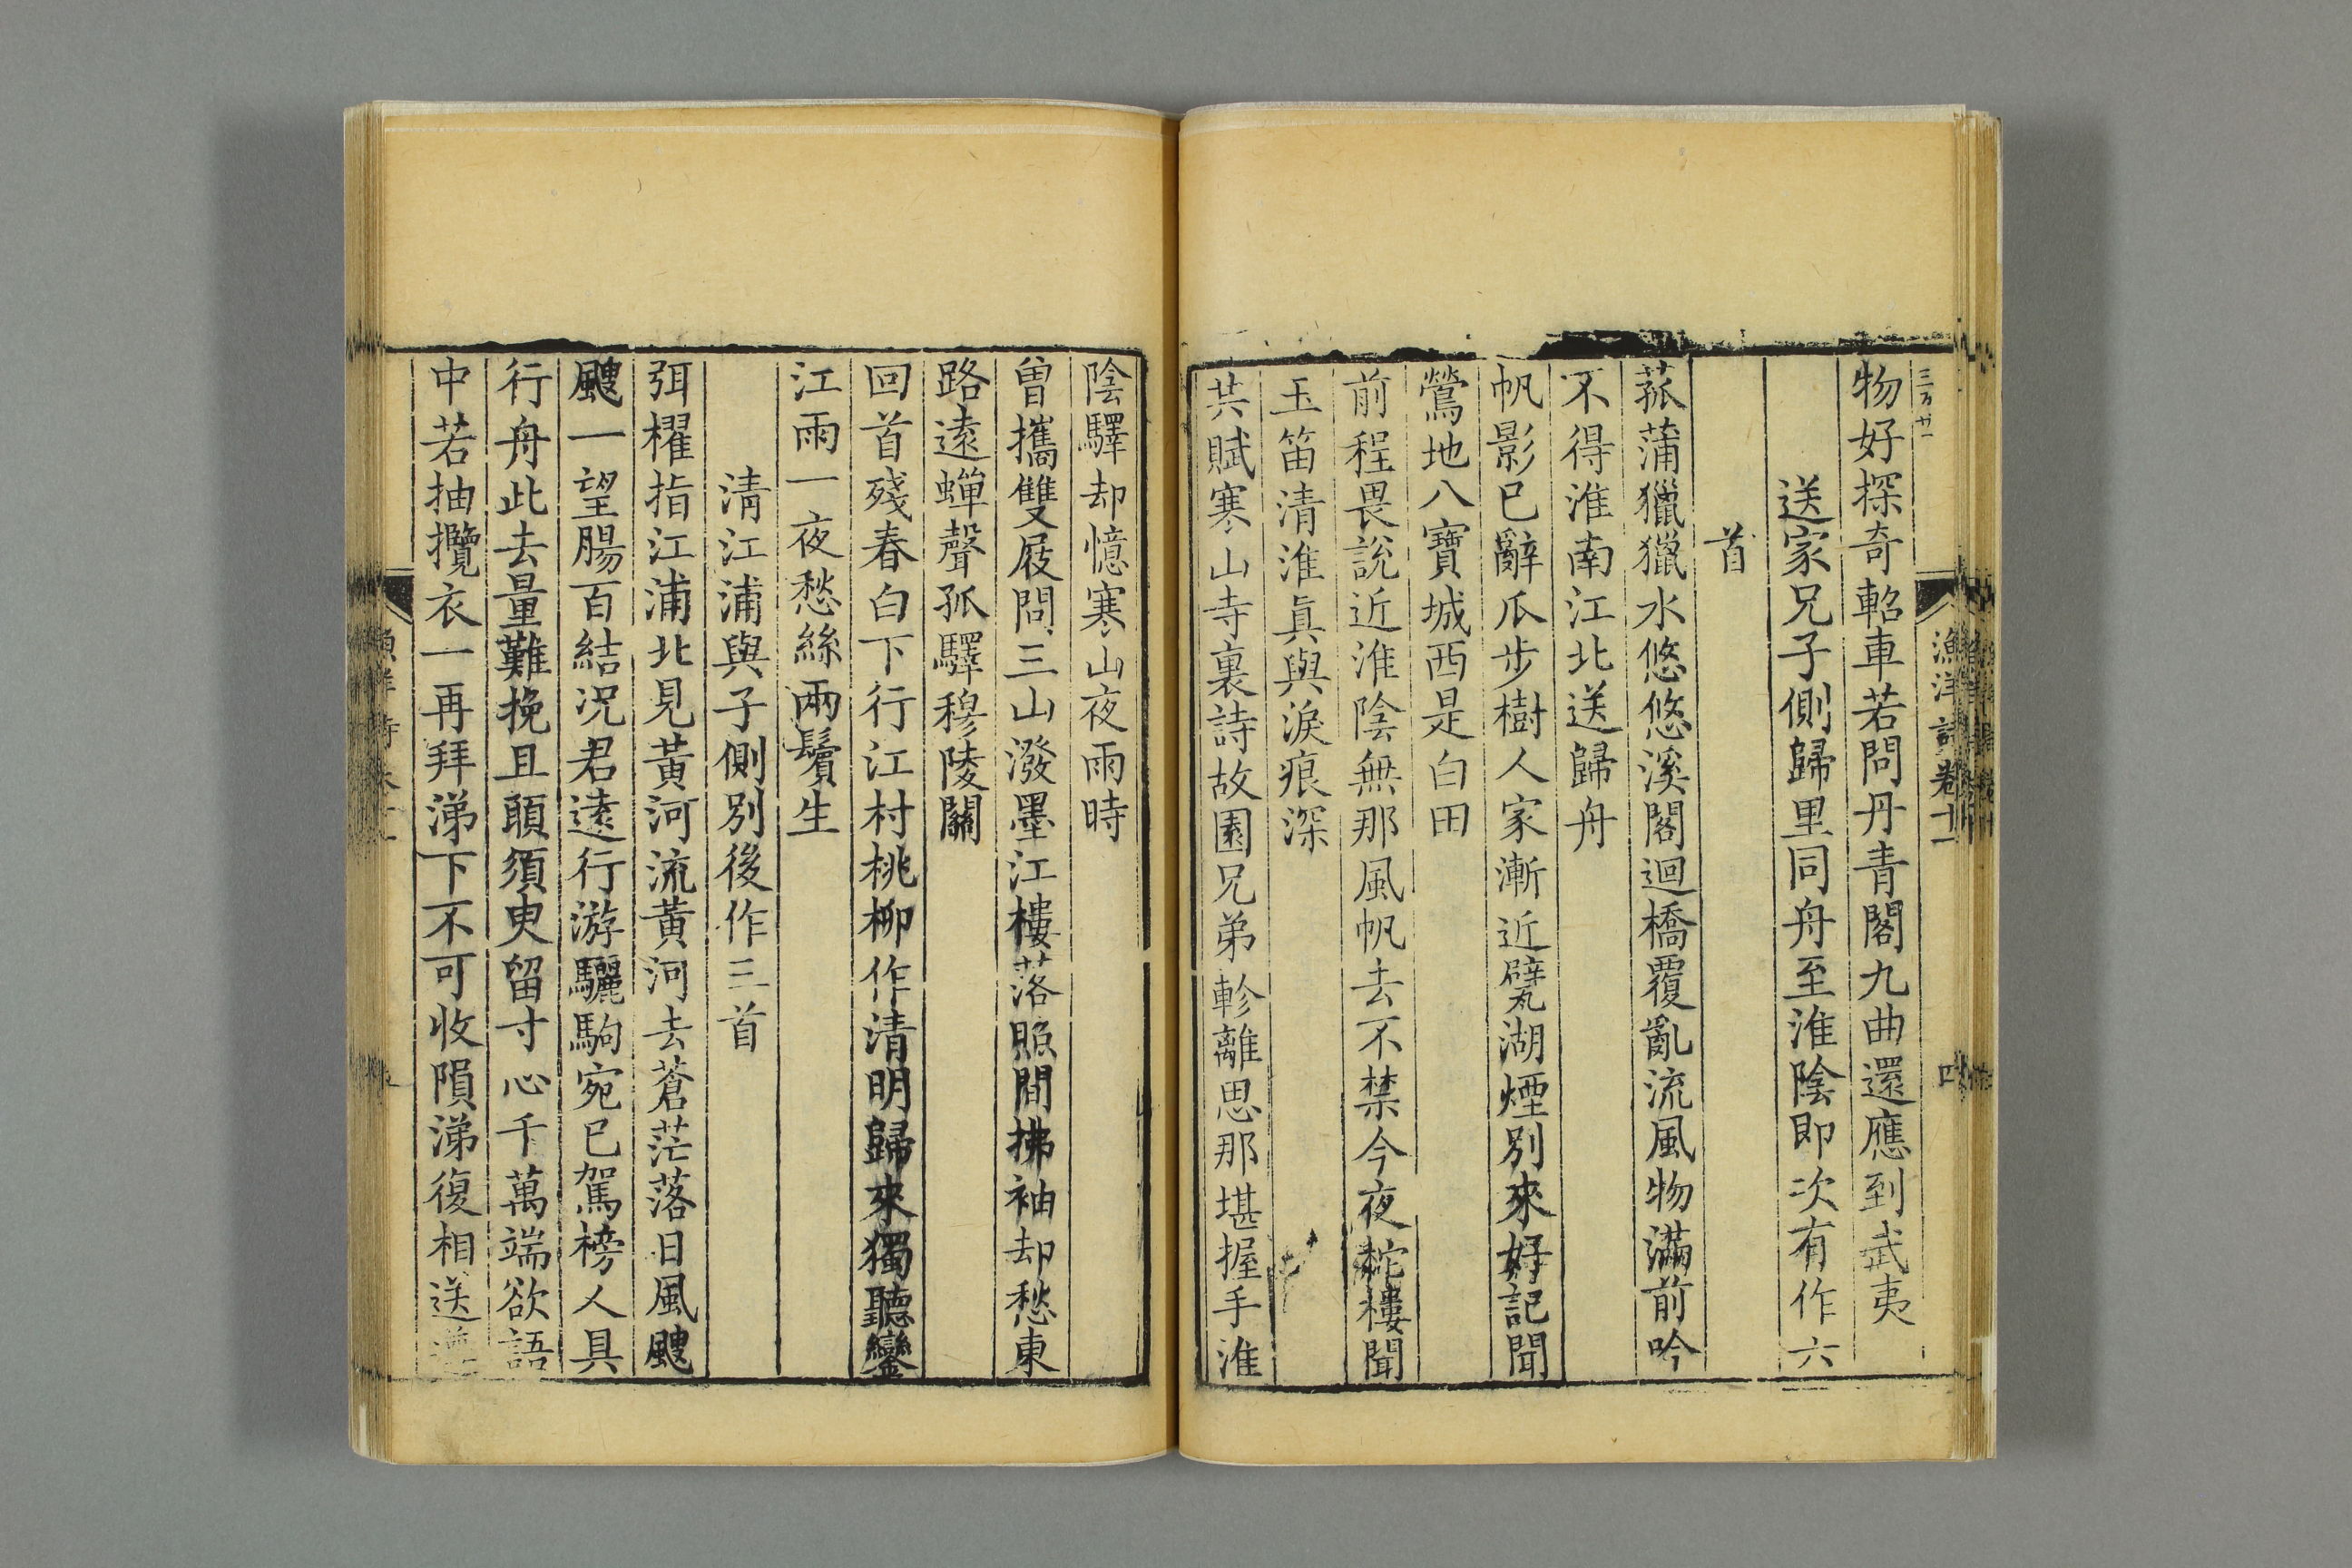 三百廿一
漁洋詩卷十一
四
物好探奇軺車若問丹青閣九曲還應到武夷
送家兄子側歸里同舟至淮陰即次有作六
首
菰蒲獵獵水悠悠溪閣迴橋覆亂流風物滿前吟
不得淮南江北送歸舟
帆影已辭瓜步樹人家漸近甓湖煙別來好記聞
鶯地八寶城西是白田
前程畏說近淮陰無那風帆去不禁今夜柁樓聞
玉笛清淮眞與淚痕深
共賦寒山寺裏詩故園兄弟軫離思那堪握手淮
陰驛却憶寒山夜雨時
曾攜雙屐問三山潑墨江樓落照間拂袖却愁東
路遠蟬聲孤驛穆陵關
回首殘春白下行江村桃柳作清明歸來獨聽鑾
江雨一夜愁絲兩鬢生
淸江浦與子側別後作三首
弭櫂指江浦北見黃河流黃河去蒼茫落日風颼
颼一望腸百結況君遠行游驪駒宛已駕榜人具
行舟此去量難挽且願須臾留寸心千萬端欲語
中若抽攬衣一再拜涕下不可收隕涕復相送